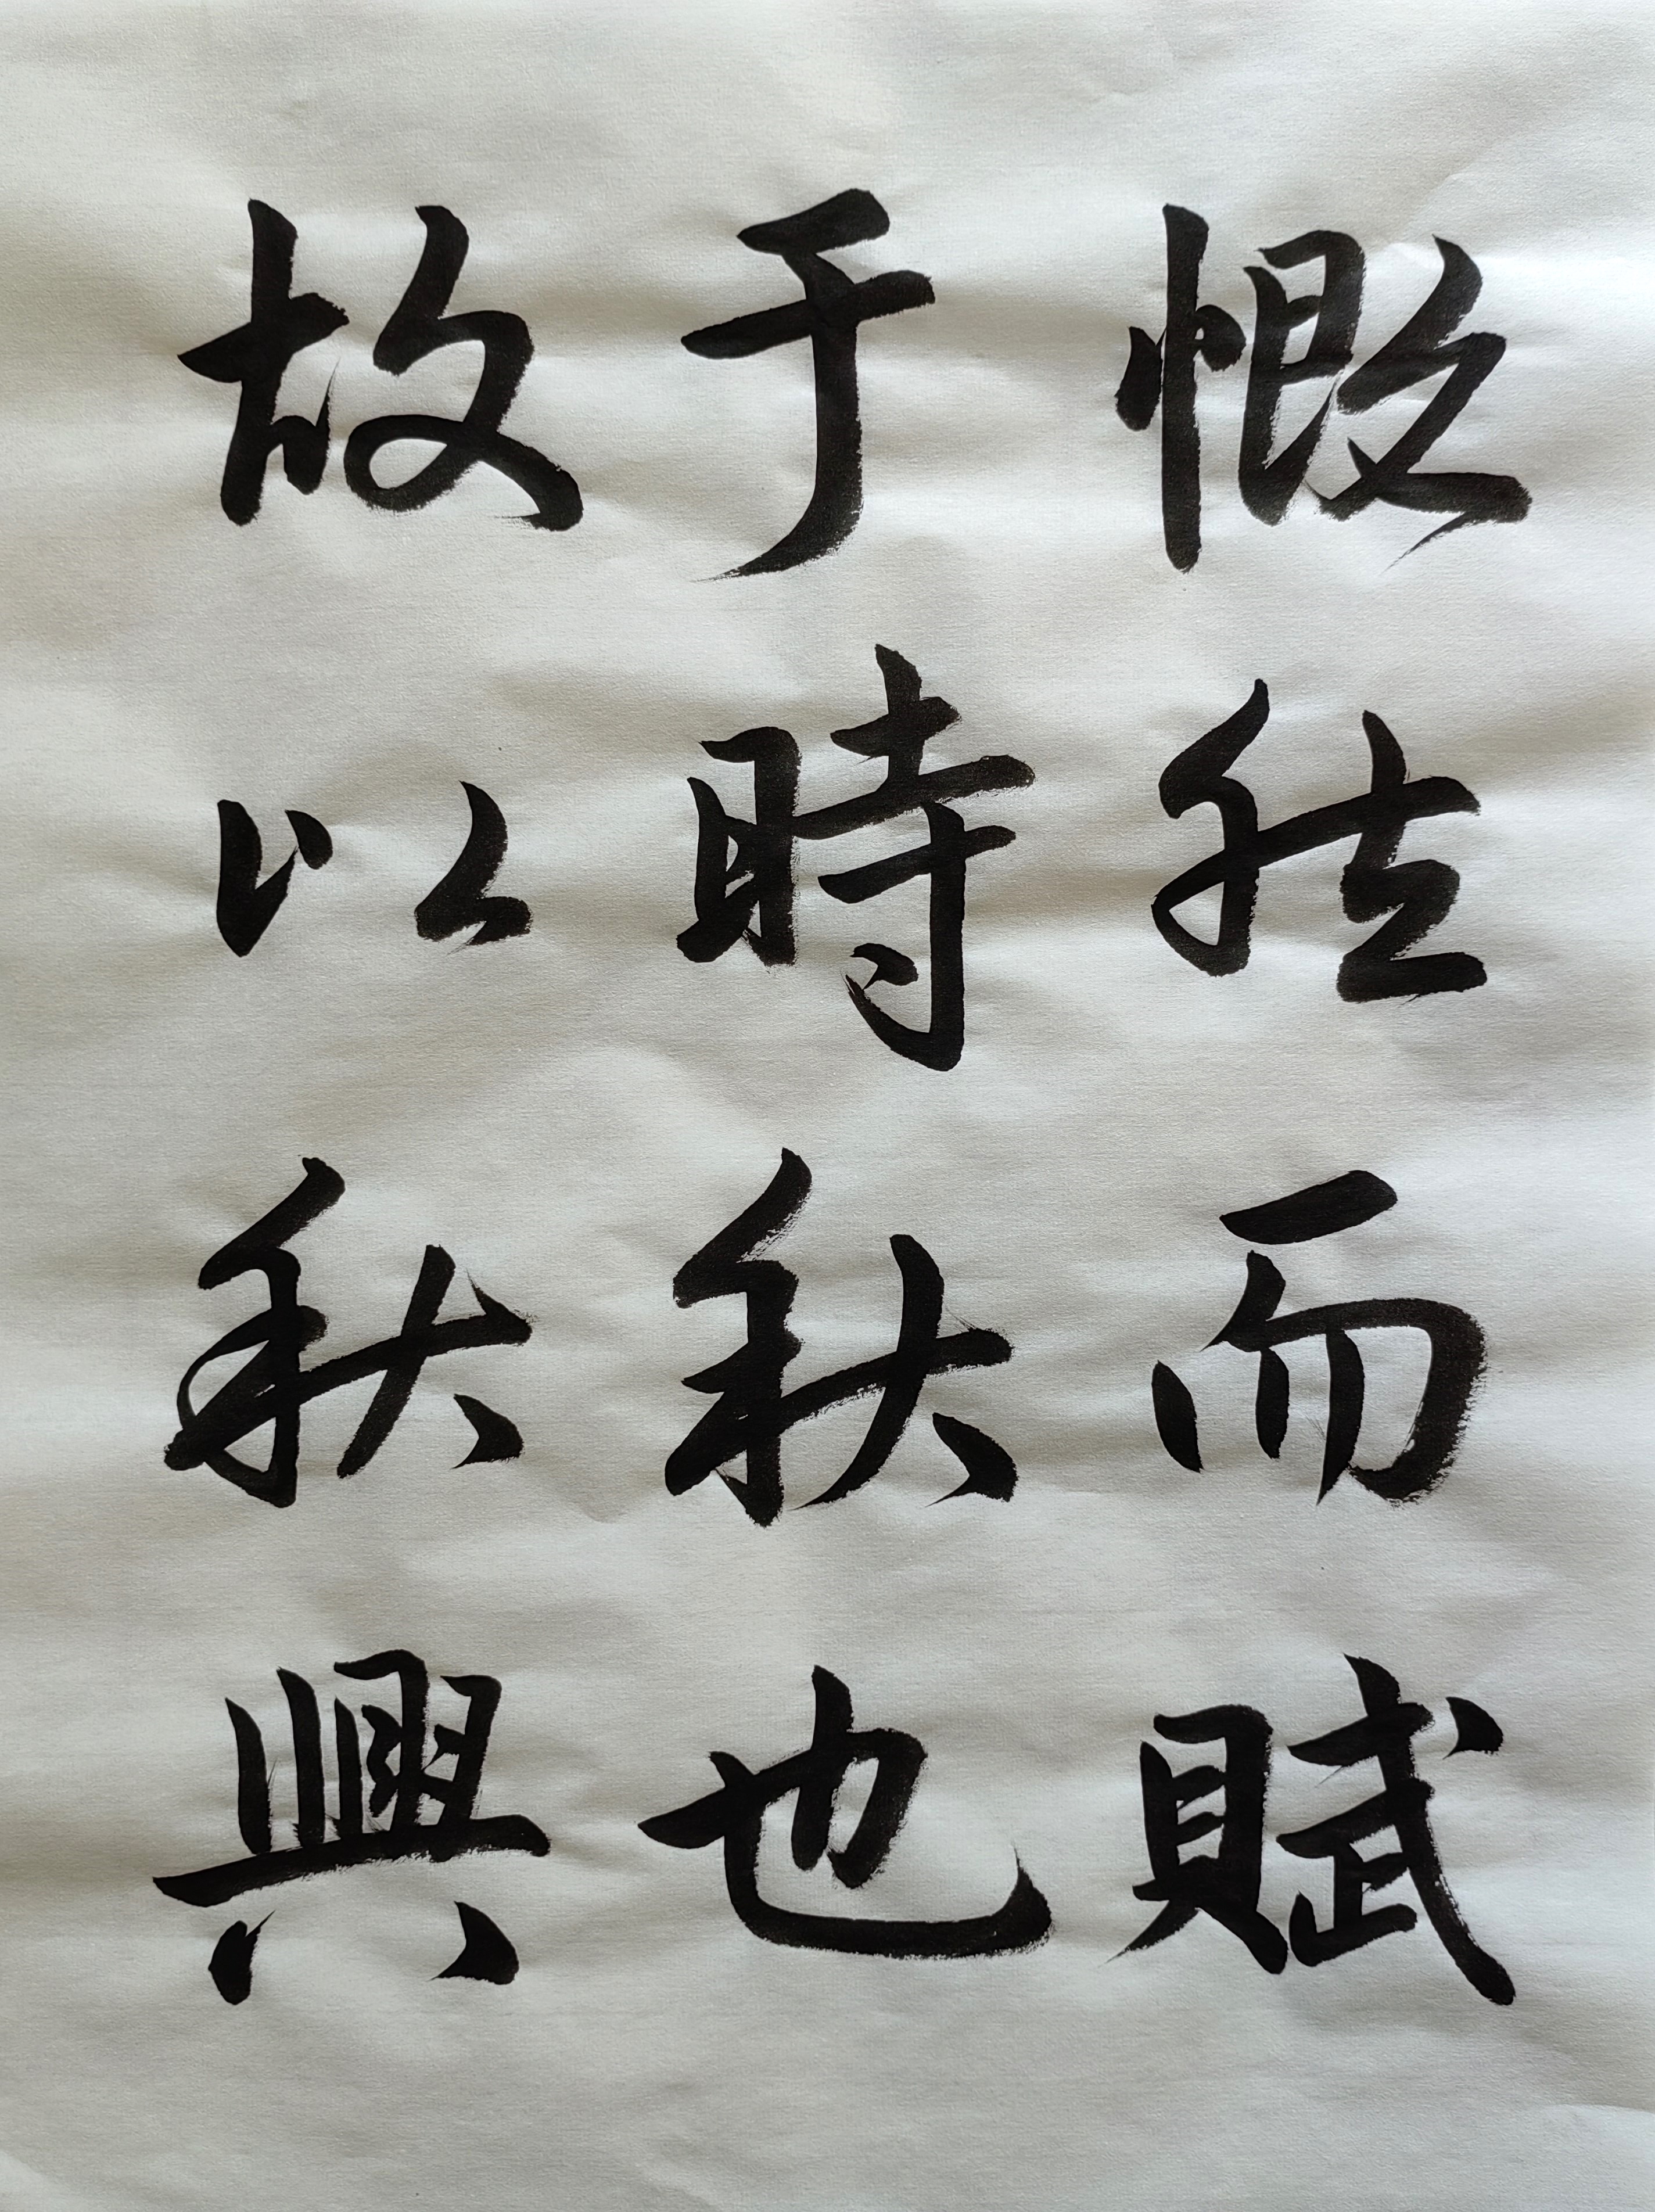 慨然而賦
于時秋也
故以秋興